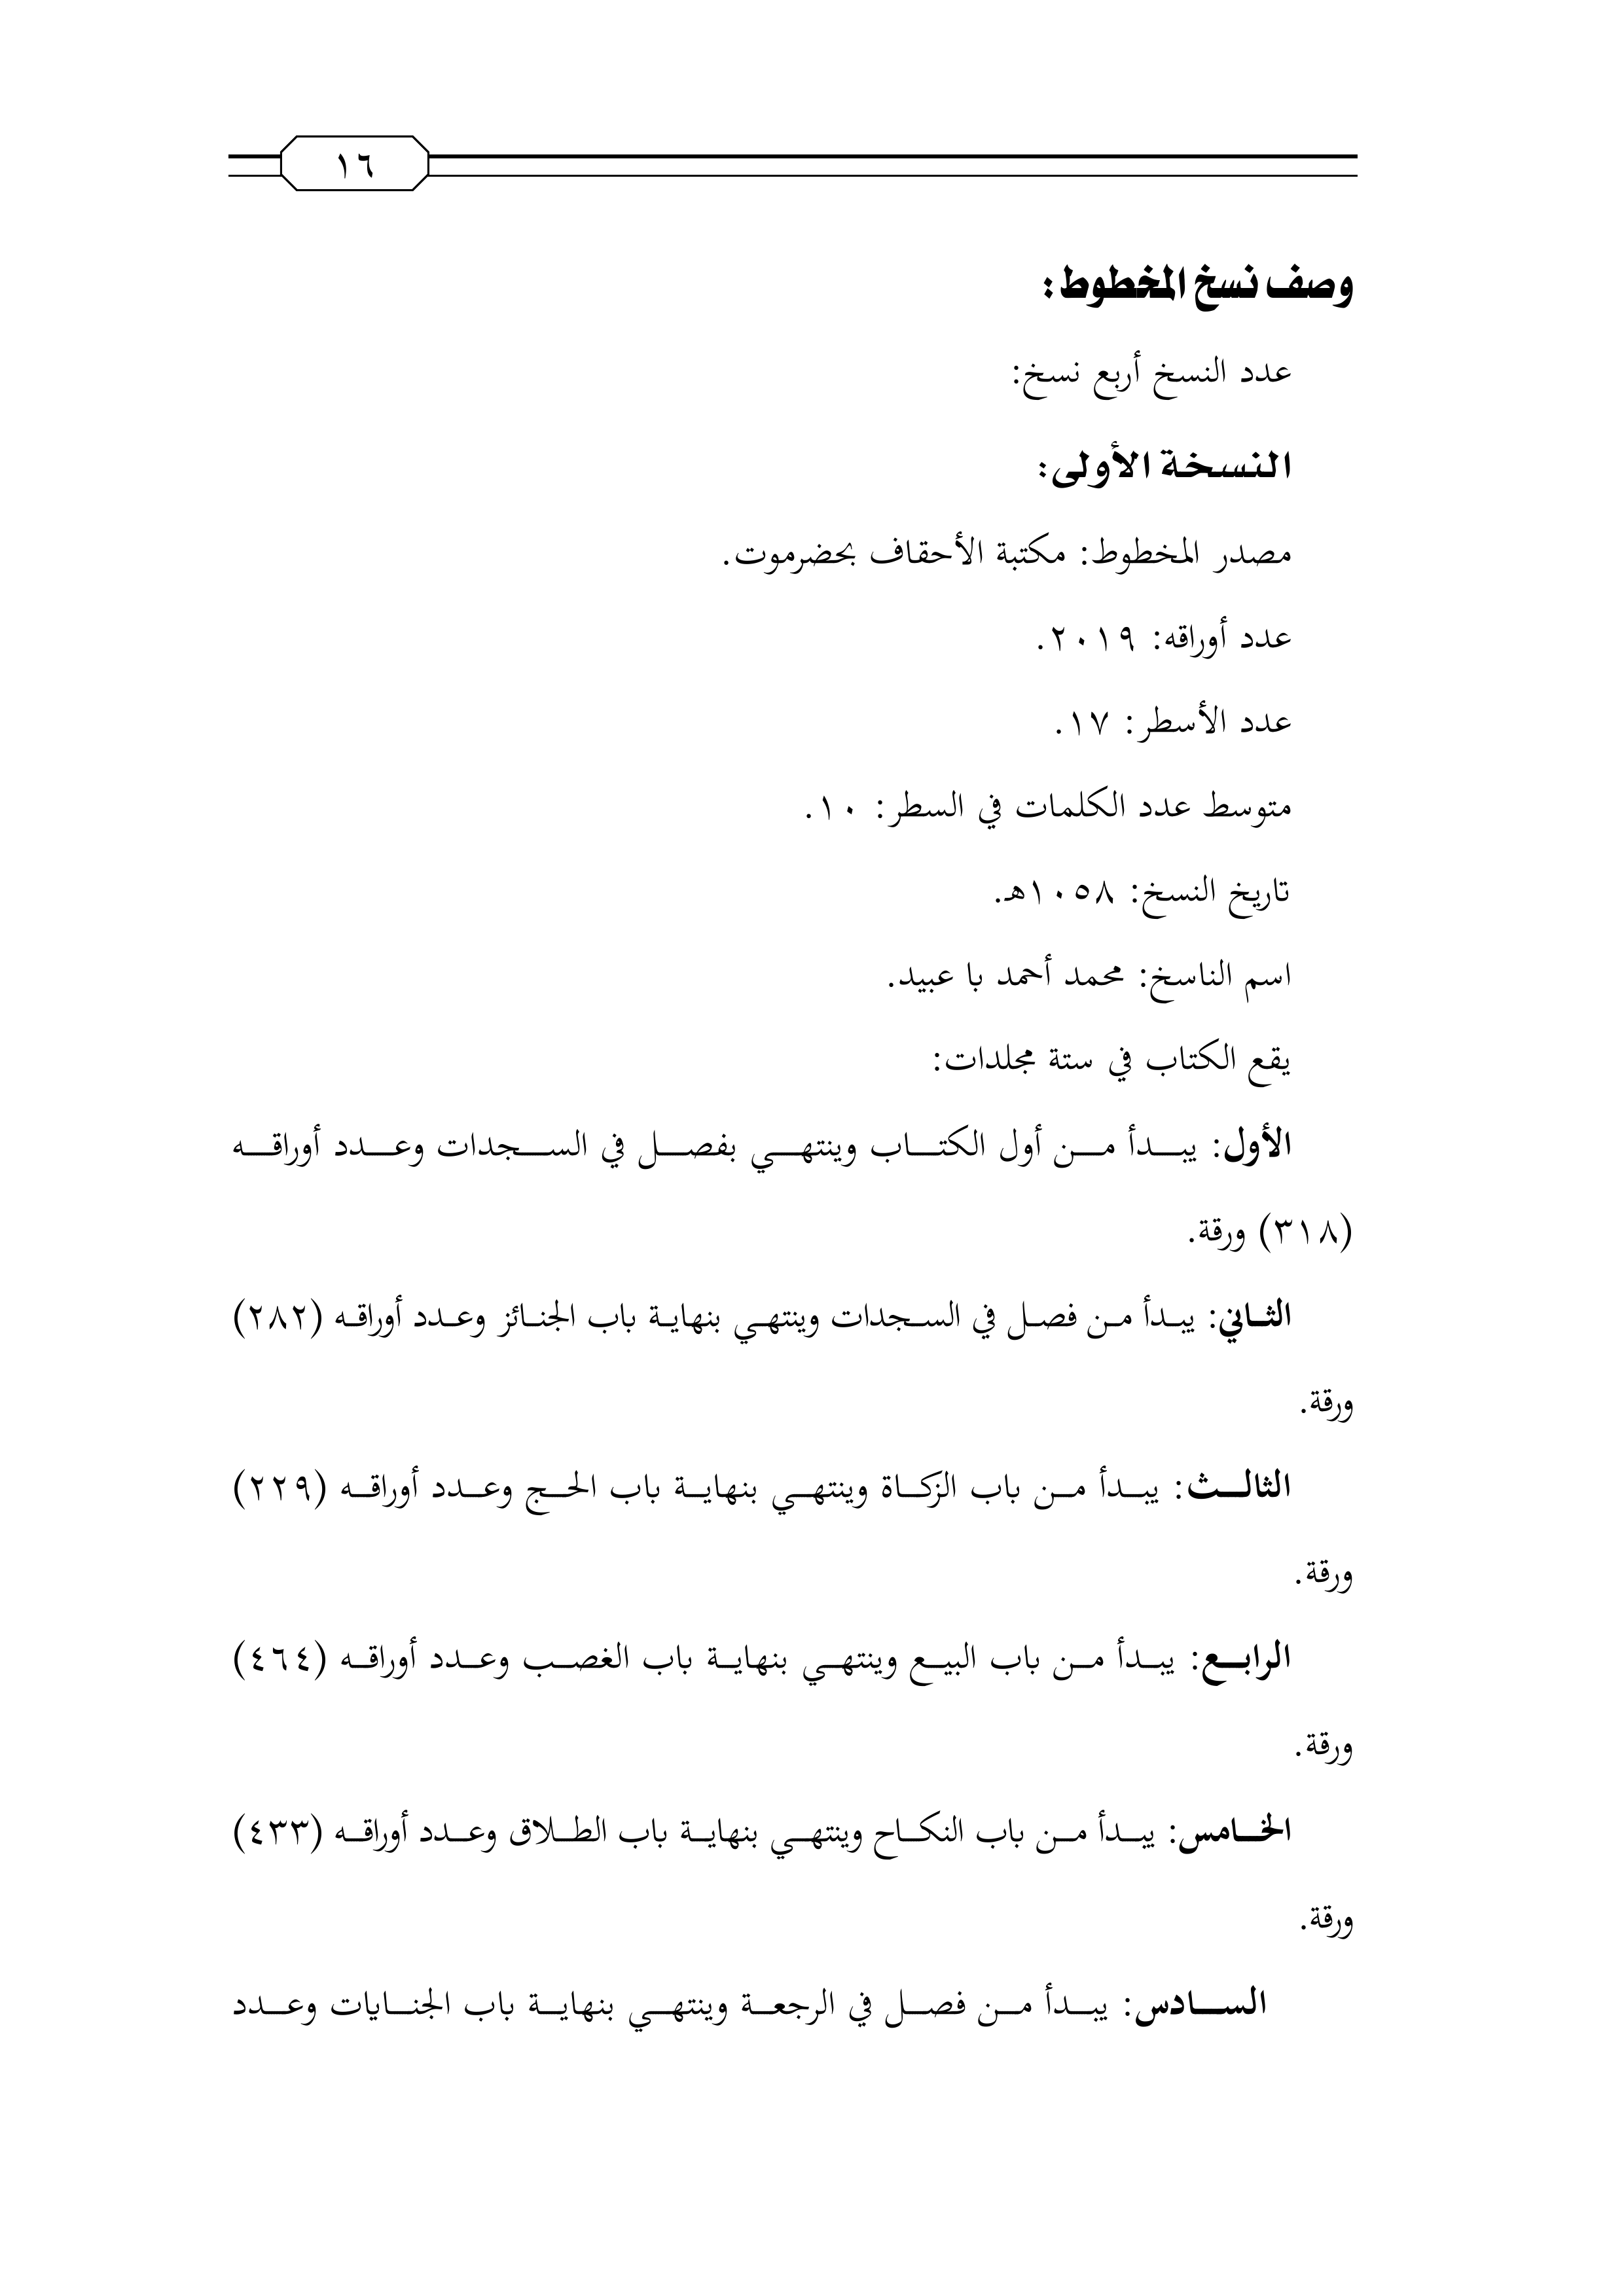 ١٦
وصف نسخ المخطوط:
عدد النسخ أربع نسخ:
النسخة الأولى:
مصدر المخطوط: مكتبة الأحقاف بحضرموت.
عدد أوراقه: ٢٠١٩.
عدد الأسطر: ١٧.
متوسط عدد الكلمات في السطر: ١٠.
تاريخ النسخ: ١٠٥٨هـ.
اسم الناسخ: محمد أحمد با عبيد.
يقع الكتاب في ستة مجلدات:
الأول: يبدأ من أول الكتاب وينتهي بفصل في السجدات وعدد أوراقه
(٣١٨) ورقة.
الثاني: يبدأ من فصل في السجدات وينتهي بنهاية باب الجنائز وعدد أوراقه (٢٨٢)
ورقة.
الثالث: يبدأ من باب الزكاة وينتهي بنهاية باب الحج وعدد أوراقه (٢٢٩)
ورقة.
الرابع: يبدأ من باب البيع وينتهي بنهاية باب الغصب وعدد أوراقه (٤٦٤)
ورقة.
الخامس: يبدأ من باب النكاح وينتهي بنهاية باب الطلاق وعدد أوراقه (٤٣٣)
ورقة.
السادس: يبدأ من فصل في الرجعة وينتهي بنهاية باب الجنايات وعدد